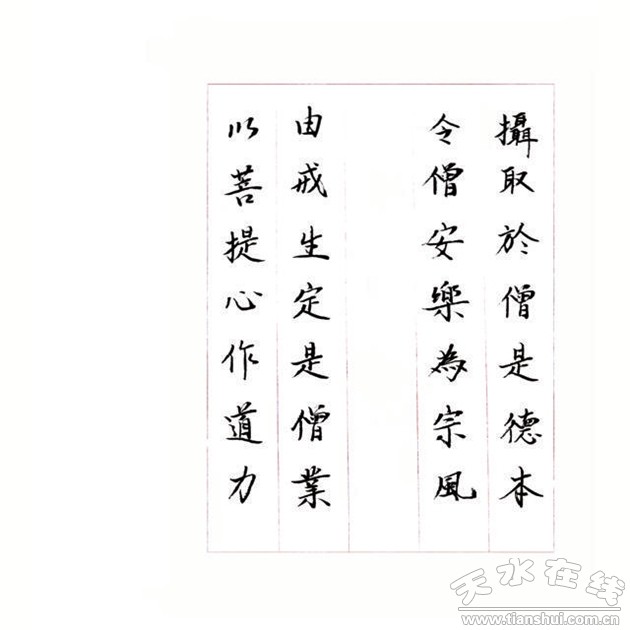 攝取於僧是德本
令僧安樂為宗風
由戒生定是僧業
以菩提心作道力
天水在线
www.tianshui.com.cn